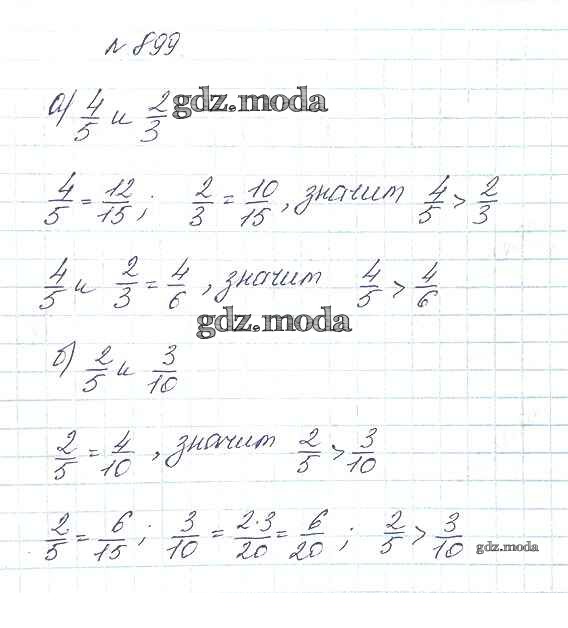 № 899
а) 4/5 и 2/3 gdz.moda
4/5 = 12/15; 2/3 = 10/15, значит 4/5 > 2/3
4/5 и 2/3 = 4/6, значит 4/5 > 4/6
gdz.moda
б) 2/5 и 3/10
2/5 = 4/10, значит 2/5 > 3/10
2/5 = 6/15; 3/10 = 2·3/20 = 6/20; 2/5 > 3/10 gdz.moda